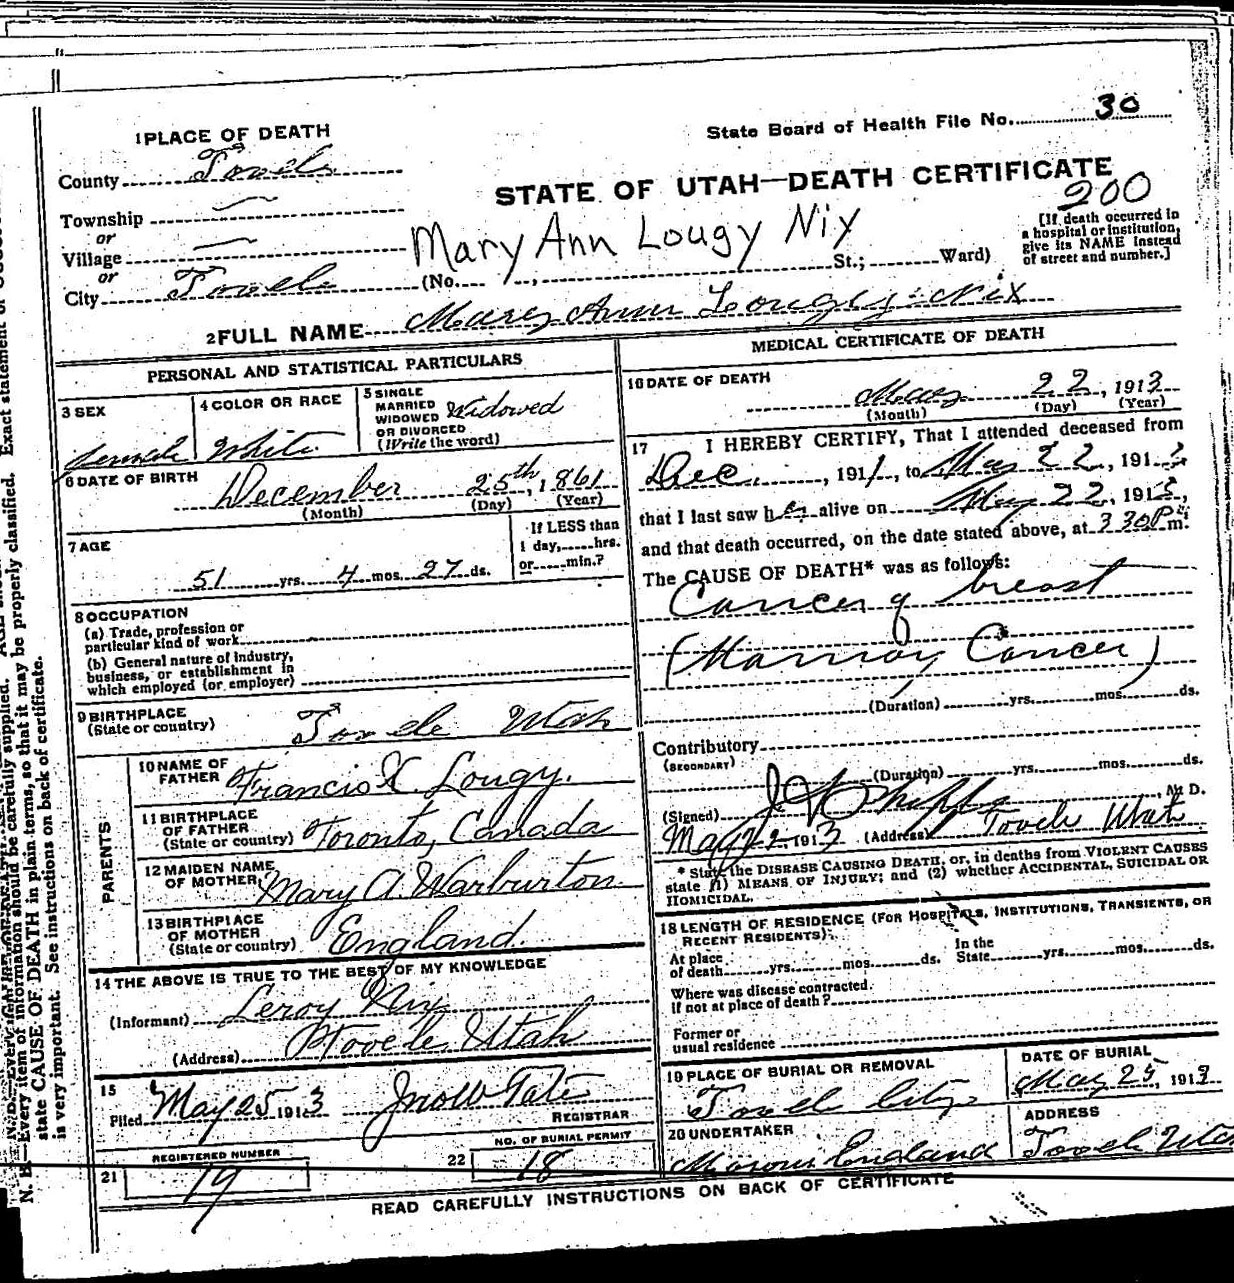 State Board of Health File No. 30
1 PLACE OF DEATH
County Tooele
Township —
or
Village —
or
City Tooele
STATE OF UTAH—DEATH CERTIFICATE
200
[If death occurred in
a hospital or institution,
give its NAME instead
of street and number.]
Mary Ann Lougy Nix
(No. , St.; Ward)
2 FULL NAME Mary Ann Lougy Nix
PERSONAL AND STATISTICAL PARTICULARS
3 SEX
female
4 COLOR OR RACE
White
5 SINGLE
MARRIED
WIDOWED
OR DIVORCED
(Write the word)
Widowed
6 DATE OF BIRTH
December 25th, 1861
(Month) (Day) (Year)
7 AGE
51 yrs. 4 mos. 27 ds.
If LESS than
1 day, hrs.
or min.?
8 OCCUPATION
(a) Trade, profession or
particular kind of work
(b) General nature of industry,
business, or establishment in
which employed (or employer)
9 BIRTHPLACE
(State or country) Tooele Utah
PARENTS
10 NAME OF
FATHER Francis X. Lougy.
11 BIRTHPLACE
OF FATHER
(State or country) Toronto, Canada
12 MAIDEN NAME
OF MOTHER Mary A. Warburton
13 BIRTHPLACE
OF MOTHER
(State or country) England.
14 THE ABOVE IS TRUE TO THE BEST OF MY KNOWLEDGE
(Informant) Leroy Nix
(Address) Tooele, Utah
15
Filed May 25 1913
REGISTRAR
21 REGISTERED NUMBER
19
22 NO. OF BURIAL PERMIT
18
MEDICAL CERTIFICATE OF DEATH
16 DATE OF DEATH
May 22, 1913
(Month) (Day) (Year)
17 I HEREBY CERTIFY, That I attended deceased from
Dec. , 1911, to May 22, 1913
that I last saw her alive on May 22, 1913,
and that death occurred, on the date stated above, at 3 30 P m.
The CAUSE OF DEATH* was as follows:
Cancer of breast
(Mamory Cancer)
(Duration) yrs. mos. ds.
Contributory
(SECONDARY)
(Duration) yrs. mos. ds.
(Signed) , M. D.
May 22 1913 (Address) Tooele Utah
* State the DISEASE CAUSING DEATH, or, in deaths from VIOLENT CAUSES
state (1) MEANS OF INJURY; and (2) whether ACCIDENTAL, SUICIDAL OR
HOMICIDAL.
18 LENGTH OF RESIDENCE (FOR HOSPITALS, INSTITUTIONS, TRANSIENTS, OR
RECENT RESIDENTS):
At place
of death yrs. mos. ds.
In the
State yrs. mos. ds.
Where was disease contracted.
if not at place of death?
Former or
usual residence
19 PLACE OF BURIAL OR REMOVAL
Tooele City
DATE OF BURIAL
May 25, 1913
20 UNDERTAKER
Moroni England
ADDRESS
Tooele Utah
READ CAREFULLY INSTRUCTIONS ON BACK OF CERTIFICATE
N. B.—Every item of information should be carefully supplied.
state CAUSE OF DEATH in plain terms, so that it may be properly classified. Exact statement of
is very important. See instructions on back of certificate.